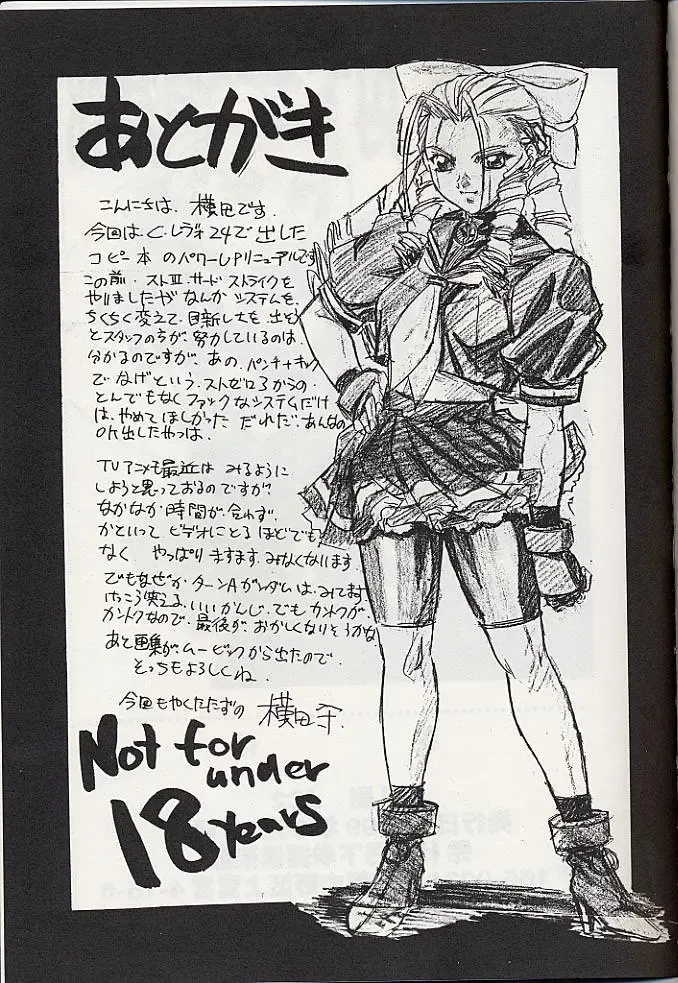 あとがき
こんにちは、横田です。
今回は、C・レヴォ24で出した
コピー本のパワーUPリニューアルです
この前・ストⅢ.サードストライクを
やりましたがなんかシステムを、
ちくちく変えて、目新しさを、出そう
とスタッフの方が、努力しているのは、
分かるのですが、あの、パンチ+キック
でなげという、ストゼロ3からの、
とんでもなくファックなシステムだけ
は、やめてほしかった だれだ、あんなの
OK出したやつは、
TVアニメも最近は みるように
しようと思っておるのですが、
なかなか時間が、合わず、
かといって ビデオにとるほどでも
なく、やっぱりますますみなくなります
でもなぜか ターンAガンダムは、みてます
けっこう笑える、いいかんじ、でも カントクが、
カントクなので、最後が、おかしくなりそうかな
あと画集が、ムービックから出たので、
そっちもよろしくね、
今回もやくたたずの 横田守.
Not for
under
18 years